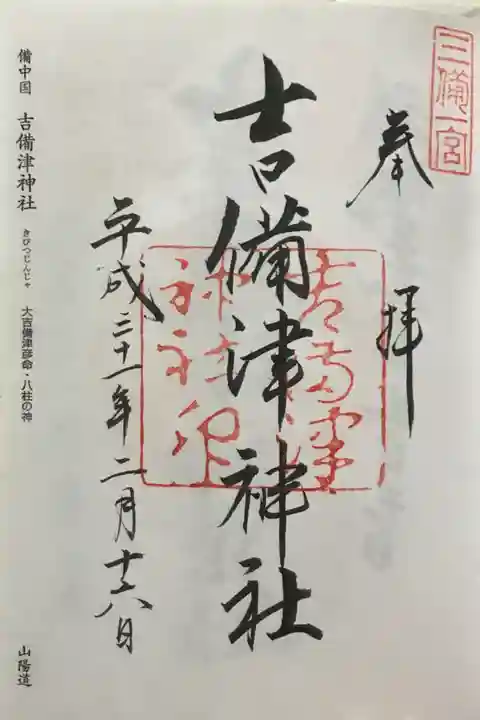 三備一宮
奉拝
吉備津神社
吉備津
神社印
平成三十一年二月十六日
備中国 吉備津神社 きびつじんじゃ 大吉備津彦命・八柱の神 山陽道